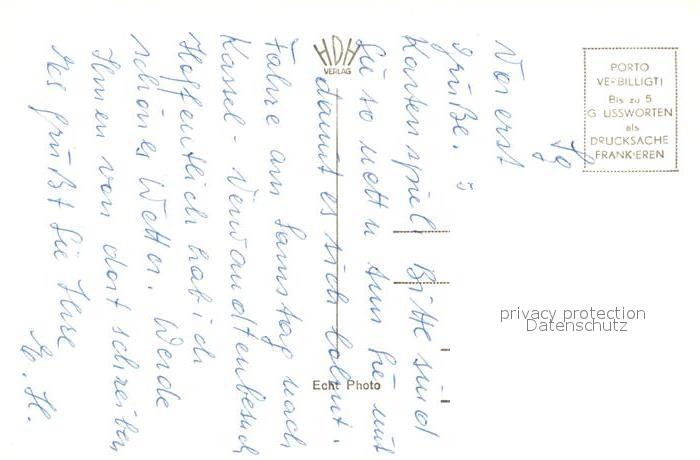 Vorerst 19
Grüße. 3
Kartenspiel, Bitte sind
Sie so nett u tun Sie mit
damit es sich lohnt.
Fahre am Samstag nach
Kassel - Verwandtenbesuch
Hoffentlich hab ich
schönes Wetter. Werde
Ihnen von dort schreiben
Es grüßt Sie Ihre
H.
HDH
VERLAG
Echt Photo
PORTO
VERBILLIGT!
Bis zu 5
GRUSSWORTEN
als
DRUCKSACHE
FRANKIEREN
privacy protection
Datenschutz